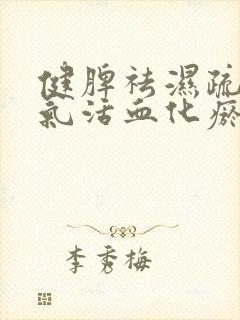 健脾祛濕疏
氣活血化瘀
李秀梅